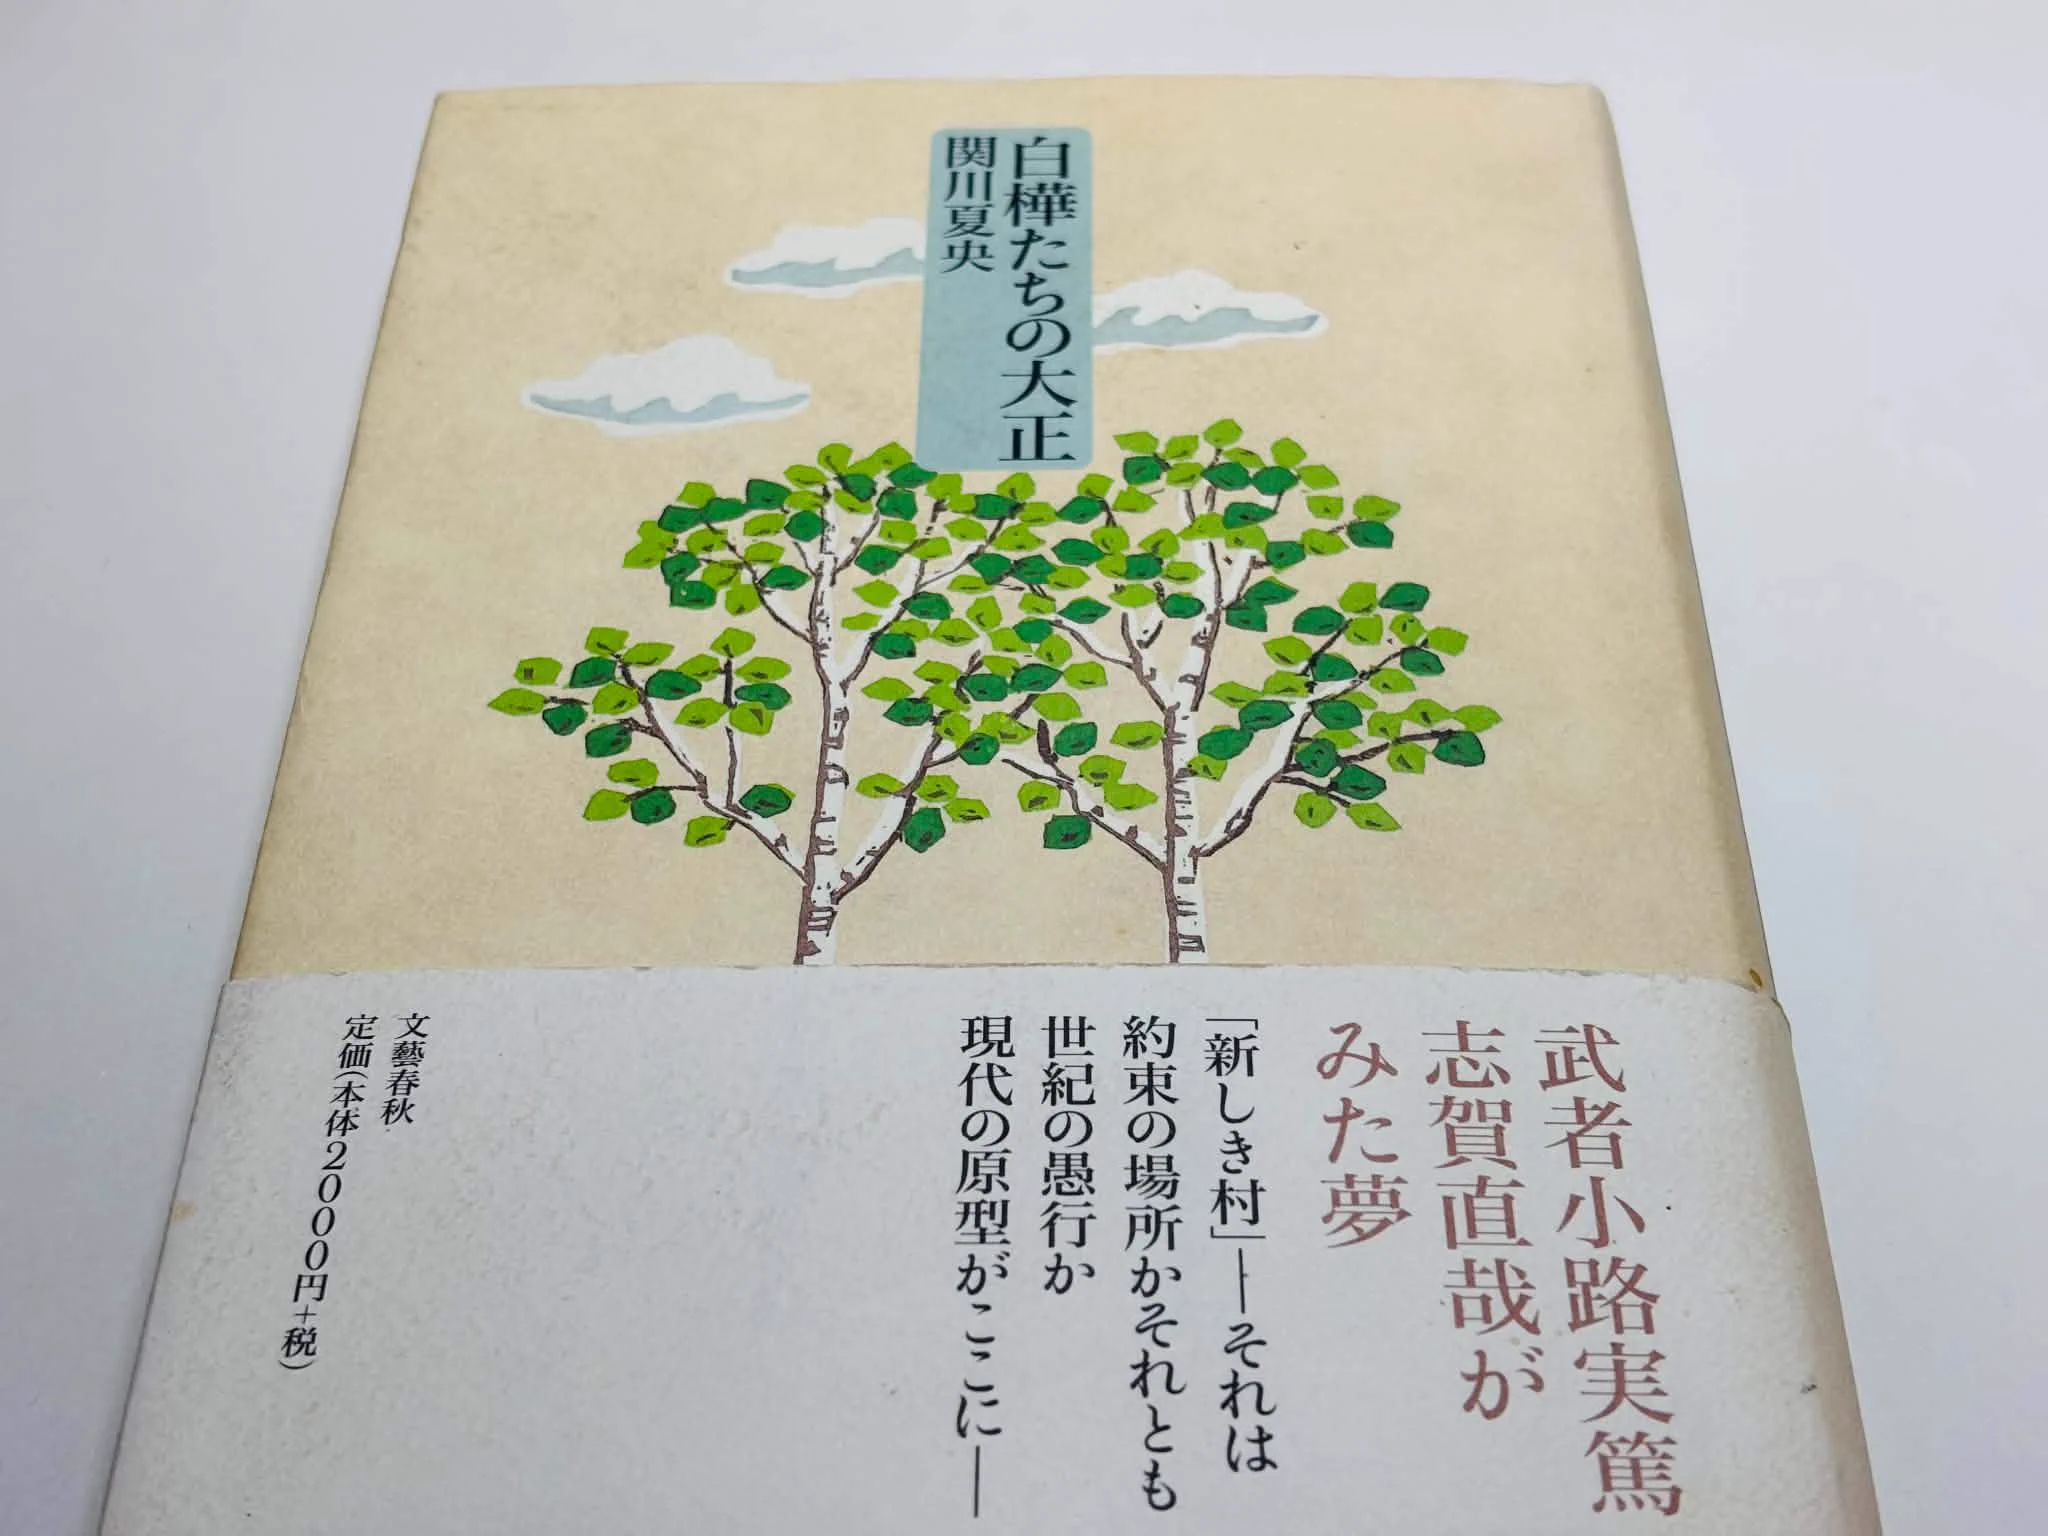 白樺たちの大正
関川夏央
武者小路実篤
志賀直哉が
みた夢
「新しき村」―それは
約束の場所かそれとも
世紀の愚行か
現代の原型がここに―
文藝春秋
定価(本体2000円+税)